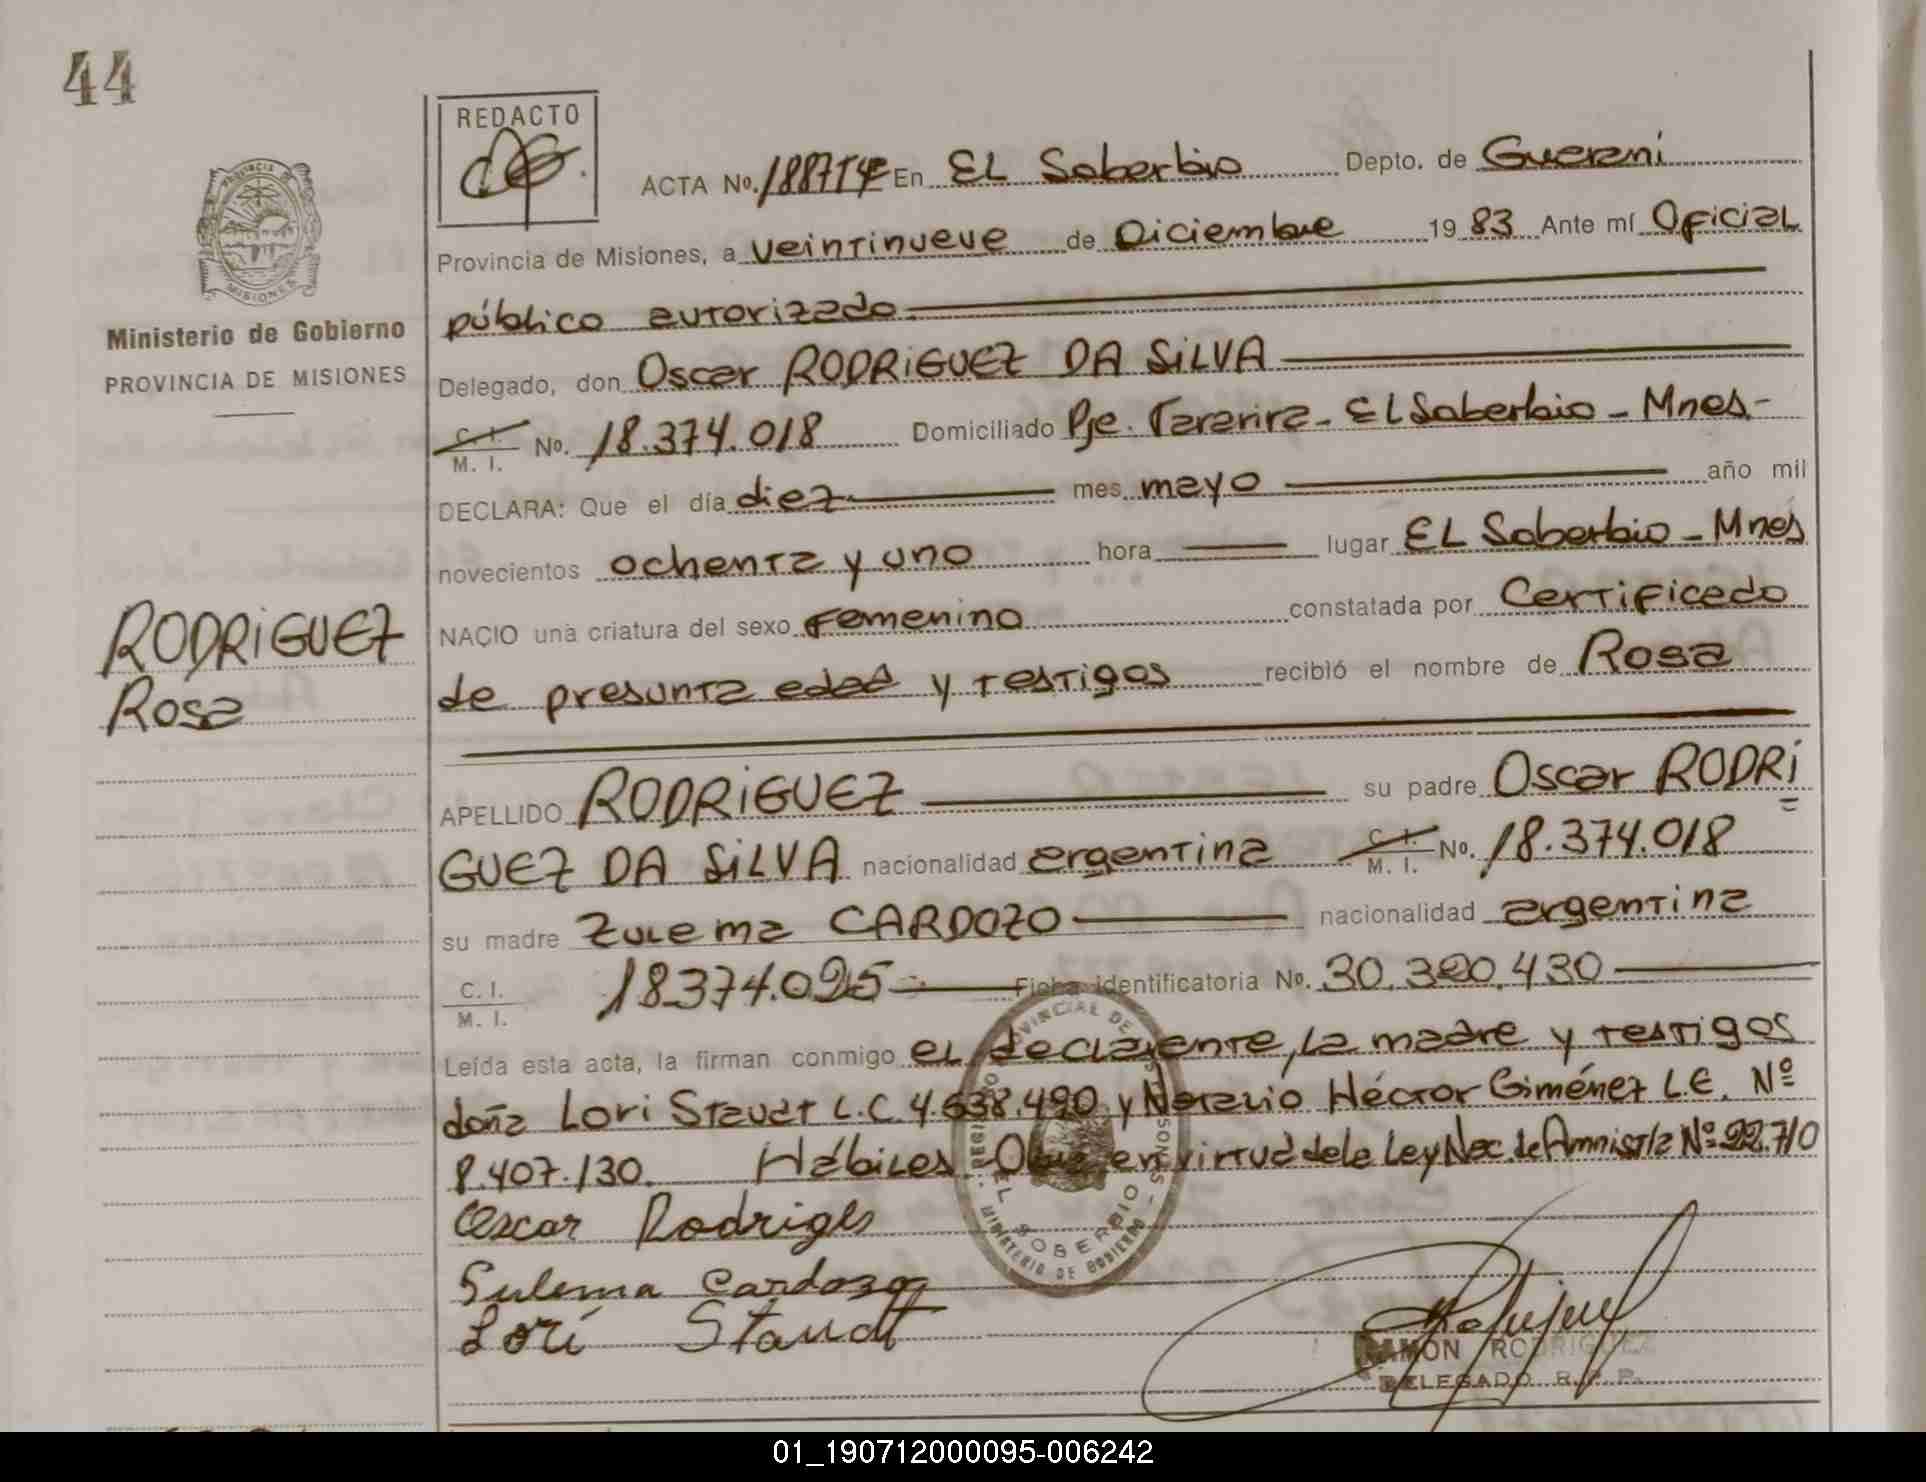 44
REDACTO
ACTA No. 188T4º En EL Soberbio Depto. de Guarani
Provincia de Misiones, a veintinueve de Diciembre 19 83 Ante mí Oficial
público autorizado
Delegado, don Oscar RODRiGUEZ DA SiLVA
C. I.
M. I. No. 18.374.018 Domiciliado Pje. Tararira - EL Soberbio - Mnes-
DECLARA: Que el día diez mes mayo año mil
novecientos ochenta y uno hora lugar EL Soberbio - Mnes
NACIO una criatura del sexo Femenino constatada por Certificado
de presunta edad y testigos recibió el nombre de Rosa
APELLIDO RODRiGUEZ su padre Oscar RODRi
GUEZ DA SiLVA nacionalidad argentina C. I. M. I. No. 18.374.018
su madre Zulema CARDOZO nacionalidad argentina
C. I.
M. I. 18374.095 Ficha identificatoria No. 30.390.430
Leída esta acta, la firman conmigo el declarante, la madre y testigos
doña Lori Staudt L.C 4.638.490 y Horacio Héctor Giménez L.E. Nº
8.407.130. Hábiles. en virtud de la Ley Nac. de Amnistia Nº 22.710
Oscar Rodriges
Sulema Cardozo
Lori Staudt
RAMON RODRIGUEZ
DELEGADO R. P. P.
REGISTRO PROVINCIAL DE LAS PERSONAS
EL SOBERBIO
MINISTERIO DE GOBIERNO
PROVINCIA
MISIONES
Ministerio de Gobierno
PROVINCIA DE MISIONES
RODRiGUEZ
Rosa
01_190712000095-006242